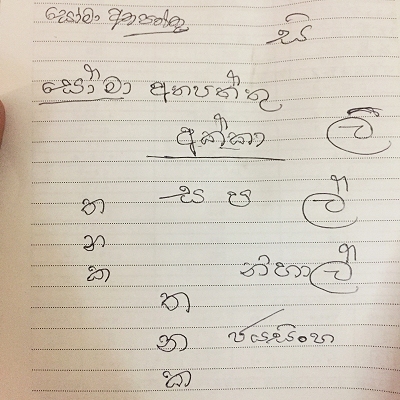 සෝමා අතපත්තු සි
සෝමා අතපත්තු
අක්කා ලි
ත ස ප ල්
න
ක නිහාල්
ත
න ජයසිංහ
ක